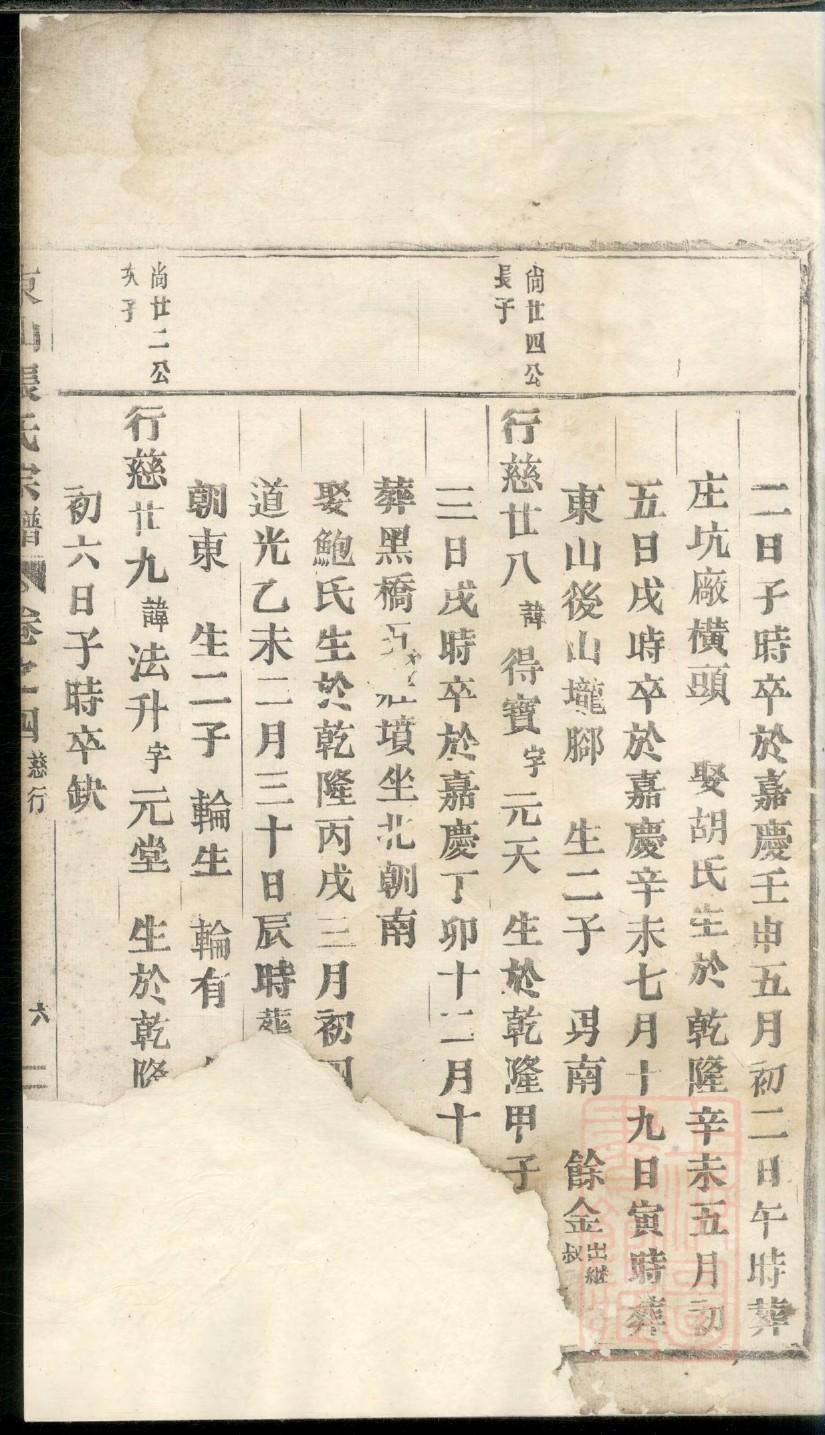 二日子時卒於嘉慶壬申五月初二日午時葬
庄坑廠橫頭 娶胡氏生於乾隆辛未五月初
五日戌時卒於嘉慶辛未七月十九日寅時葬
東山後山壠腳 生二子 勇南 餘金出繼叔
尚廿四公長子
行慈廿八諱得寶字元天 生於乾隆甲子
三日戌時卒於嘉慶丁卯十二月十
葬黑橋 墳坐北朝南
娶鮑氏生於乾隆丙戌三月初四
道光乙未二月三十日辰時葬
朝東 生二子 輪生 輪有
尚廿二公次子
行慈廿九諱法升字元堂 生於乾隆
初六日子時卒缺
東山張氏宗譜 卷之四 慈行 六